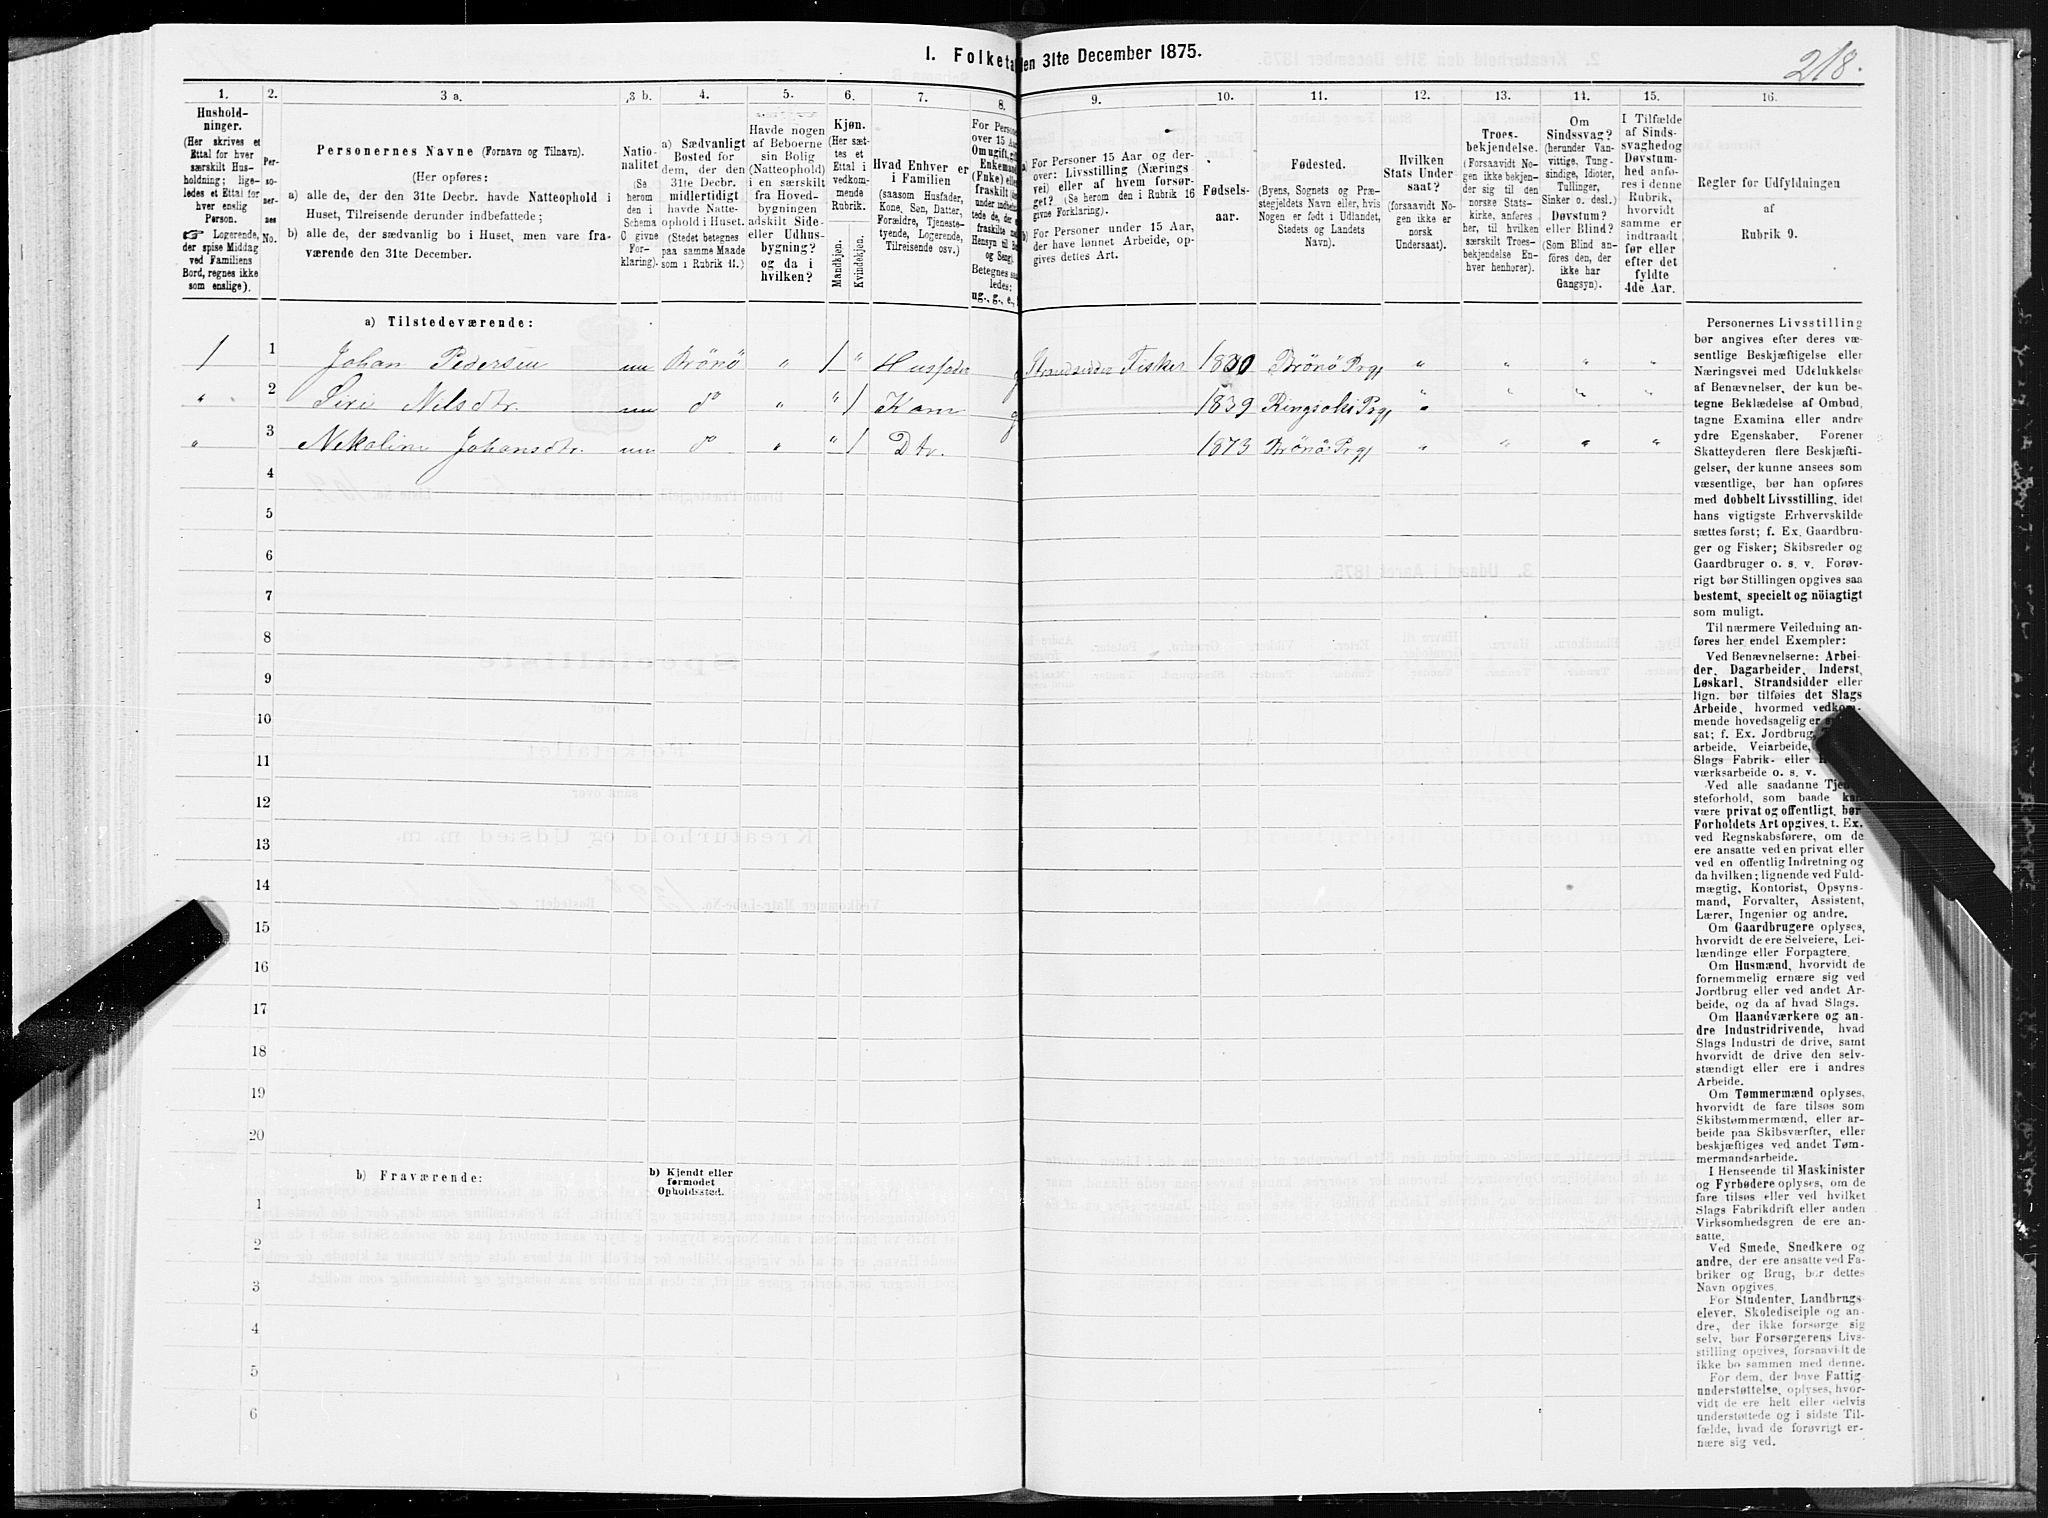 I. Folketa
en 31te December 1875.
218.
1.
Hushold-
ninger.
(Her skrives et
Ettal for hver
særskilt Hus-
holdning; lige-
ledes et Ettal for
hver enslig
Person.
☞ Logerende,
der spise Middag
ved Familiens
Bord, regnes ikke
som enslige).
2.
Per-
so-
ner-
nes
No.
3 a.
Personernes Navne (Fornavn og Tilnavn).
(Her opføres:
a) alle de, der den 31te Decbr. havde Natteophold i
Huset, Tilreisende derunder indbefattede;
b) alle de, der sædvanlig bo i Huset, men vare fra-
værende den 31te December.
3 b.
Natio-
nalitet
(Se
herom
den i
Schema
C givne
For-
klaring).
4.
a) Sædvanligt
Bosted for
dem, der den
31te Decbr.
midlertidigt
havde Natte-
ophold i Huset.
(Stedet betegnes
paa samme Maade
som i Rubrik 11.)
5.
Havde nogen
af Beboerne
sin Bolig
(Natteophold)
i en særskilt
fra Hoved-
bygningen
adskilt Side-
eller Udhus-
bygning?
og da i
hvilken?
6.
Kjøn.
(Her sæt-
tes et
Ettal i
vedkom-
mende
Rubrik.
Mandkjøn.
Kvindekjøn.
7.
Hvad Enhver er
i Familien
(saasom Husfader,
Kone, Søn, Datter,
Forældre, Tjeneste-
tyende, Logerende,
Tilreisende osv.)
8.
For Person
over 15 Aar
Om ugift, gift
Enkemand
(Enke) eller
fraskilt
Betegnes saa
ledes:
ug., g., e.,
9.
a) For Personer 15 Aar og der-
over: Livsstilling (Nærings
vei) eller af hvem forsør-
get? (Se herom den i Rubrik 16
givne Forklaring).
b) For Personer under 15 Aar,
der have lønnet Arbeide, op-
gives dettes Art.
10.
Fødsels-
aar.
11.
Fødested.
(Byens, Sognets og Præ-
stegjeldets Navn eller, hvis
Nogen er født i Udlandet,
Stedets og Landets
Navn).
12.
Hvilken
Stats Under
saat?
(forsaavidt No-
gen ikke er
norsk
Undersaat).
13.
Troes-
bekjendelse.
(Forsaavidt No-
gen ikke bekjen-
der sig til den
norske Stats-
kirke, anføres
her, til hvilken
særskilt Troes-
bekjendelse En-
hver henhører).
14.
Om
Sindssvag?
(herunder Van-
vittige, Tung-
sindige, Idioter,
Tullinger,
Sinker o. desl.)
Døvstum?
eller Blind?
(Som Blind an-
føres den, der
ikke har
Gangsyn).
15.
I Tilfælde
af Sinds-
svaghed og
Døvstum-
hed anfø-
res i denne
Rubrik,
hvorvidt
samme er
indtraadt
før eller
efter det
fyldte
4de Aar.
16.
Regler for Udfyldningen
af
Rubrik 9.
a) Tilstedeværende:
1 1 Johan Pedersen nn Brönö " 1 " Husfader g Strandsidder Fisker 1830 Brönö Prgj " " " "
" 2 Siri Nilsdtr. nn do " " 1 Kone g 1839 Ringsaker Prgj " " " "
" 3 Nikoline Johansdtr. nn do " " 1 Dtr. 1873 Brönö Prgj " " " "
4
5
6
7
8
9
10
11
12
13
14
15
16
17
18
19
20
b) Fraværende:
b) Kjendt eller
formodet
Opholdssted.
1
2
3
4
5
6
Personernes Livsstilling
bør angives efter deres væ-
sentlige Beskjæftigelse eller
Næringsvei med Udelukkelse
af Benævnelser, der kun be-
tegne Beklædelse af Ombud,
tagne Examina eller andre
ydre Egenskaber. Forener
Skatteyderen flere Beskjæfti-
gelser, der kunne ansees som
væsentlige, bør han opføres
med dobbelt Livsstilling, idet
hans vigtigste Erhvervskilde
sættes først; f. Ex. Gaardbru-
ger og Fisker; Skibsreder og
Gaardbruger o. s. v. Forøv-
rigt bør Stillingen opgives saa
bestemt, specielt og nöiagtigt
som muligt.
Til nærmere Veiledning an-
føres her endel Exempler:
Ved Benævnelserne: Arbei-
der, Dagarbeider, Inderst,
Løskarl, Strandsidder eller
lign. bør tilføies det Slags
Arbeide, hvormed vedkom-
mende hovedsagelig er
sat; f. Ex. Jordbrug,
arbeide, Veiarbeide,
Slags Fabrik- eller
værksarbeide o. s. v.
Ved alle saadanne Tjen-
steforhold, som baade kan
være privat og offentligt, bør
Forholdets Art opgives, t. Ex.
ved Regnskabsførere, om de
ere ansatte ved en privat eller
ved en offentlig Indretning og
da hvilken; lignende ved Fuld-
mægtig, Kontorist, Opsyns-
mand, Forvalter, Assistent,
Lærer, Ingeniør og andre.
Om Gaardbrugere oplyses,
hvorvidt de ere Selveiere, Lei-
lændinge eller Forpagtere.
Om Husmænd, hvorvidt de
fornemmelig ernære sig ved
Jordbrug eller ved andet Ar-
beide, og da af hvad Slags.
Om Haandværkere og an-
dre Industridrivende, hvad
Slags Industri de drive, samt
hvorvidt de drive den selv-
stændigt eller ere i andres
Arbeide.
Om Tømmermænd oplyses,
hvorvidt de fare tilsøs som
Skibstømmermænd, eller ar-
beide paa Skibsværfter, eller
beskjæftiges ved andet Tøm-
mermandsarbeide.
I Henseende til Maskinister
og Fyrbødere oplyses, om de
fare tilsøs eller ved hvilket
Slags Fabrikdrift eller anden
Virksomhedsgren de ere an-
satte.
Ved Smede, Snedkere og
andre, der ere ansatte ved Fa-
briker og Brug, bør dettes
Navn opgives.
For Studenter, Landbrugs-
elever, Skoledisciple og an-
dre, der ikke forsørge sig
selv, bør Forsørgerens Livs-
stilling opgives, forsaavidt de
ikke bo sammen med denne.
For dem, der have Fattig-
understøttelse, oplyses, hvor-
vidt de ere helt eller delvis
understøttede og i sidste Til-
fælde, hvad de forøvrigt er-
nære sig ved.